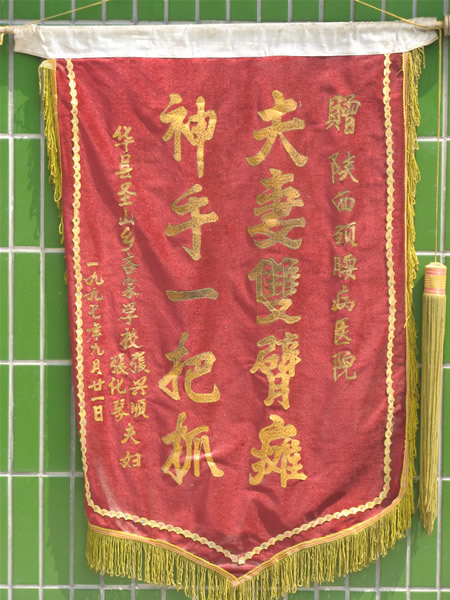 赠 陕西颈腰病医院
夫妻雙臂瘫
神手一把抓
华县圣山乡客家学校張兴順夫妇
張化琴
一九九七年九月廿一日